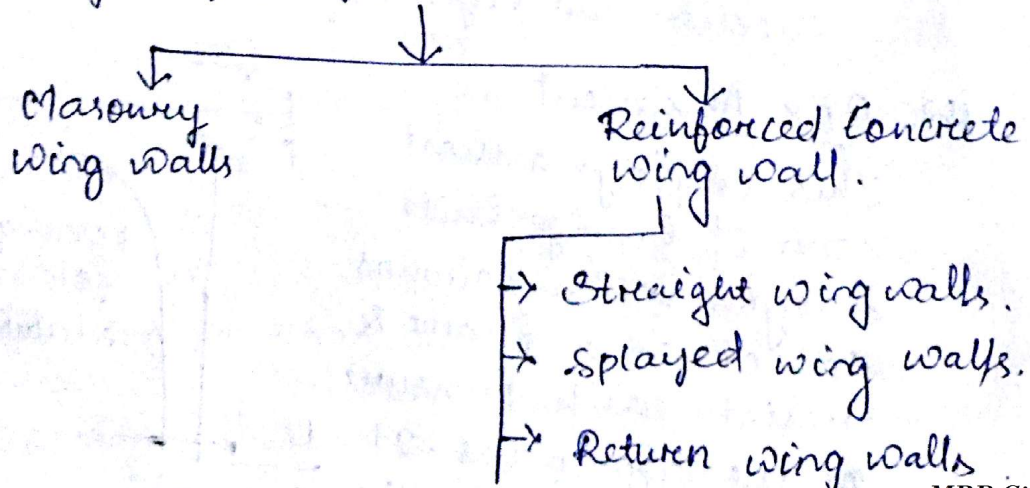 Masonry
wing walls
Reinforced Concrete
wing wall.
→ Straight wing walls.
→ Splayed wing walls.
→ Return wing walls